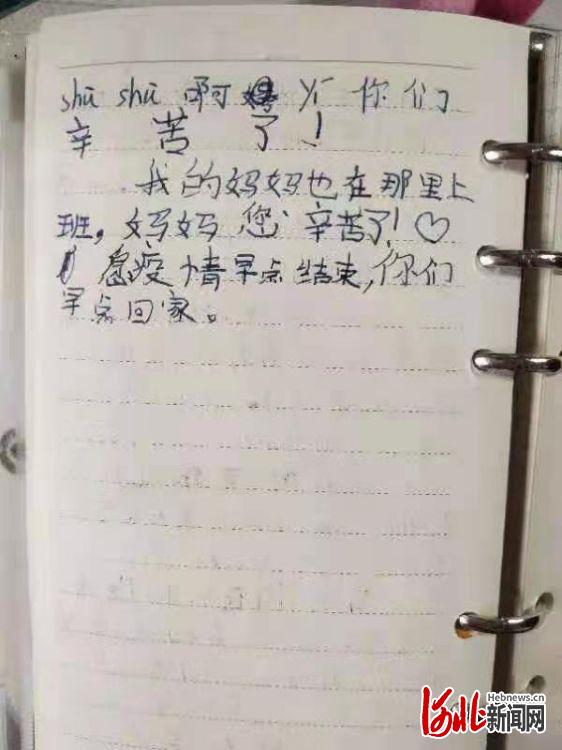 shū shū 啊 yí 你们
辛苦了！
我的妈妈也在那里上
班，妈妈您辛苦了！♡
疫情早点结束，你们
早点回家。
Hebnews.cn
河北新闻网